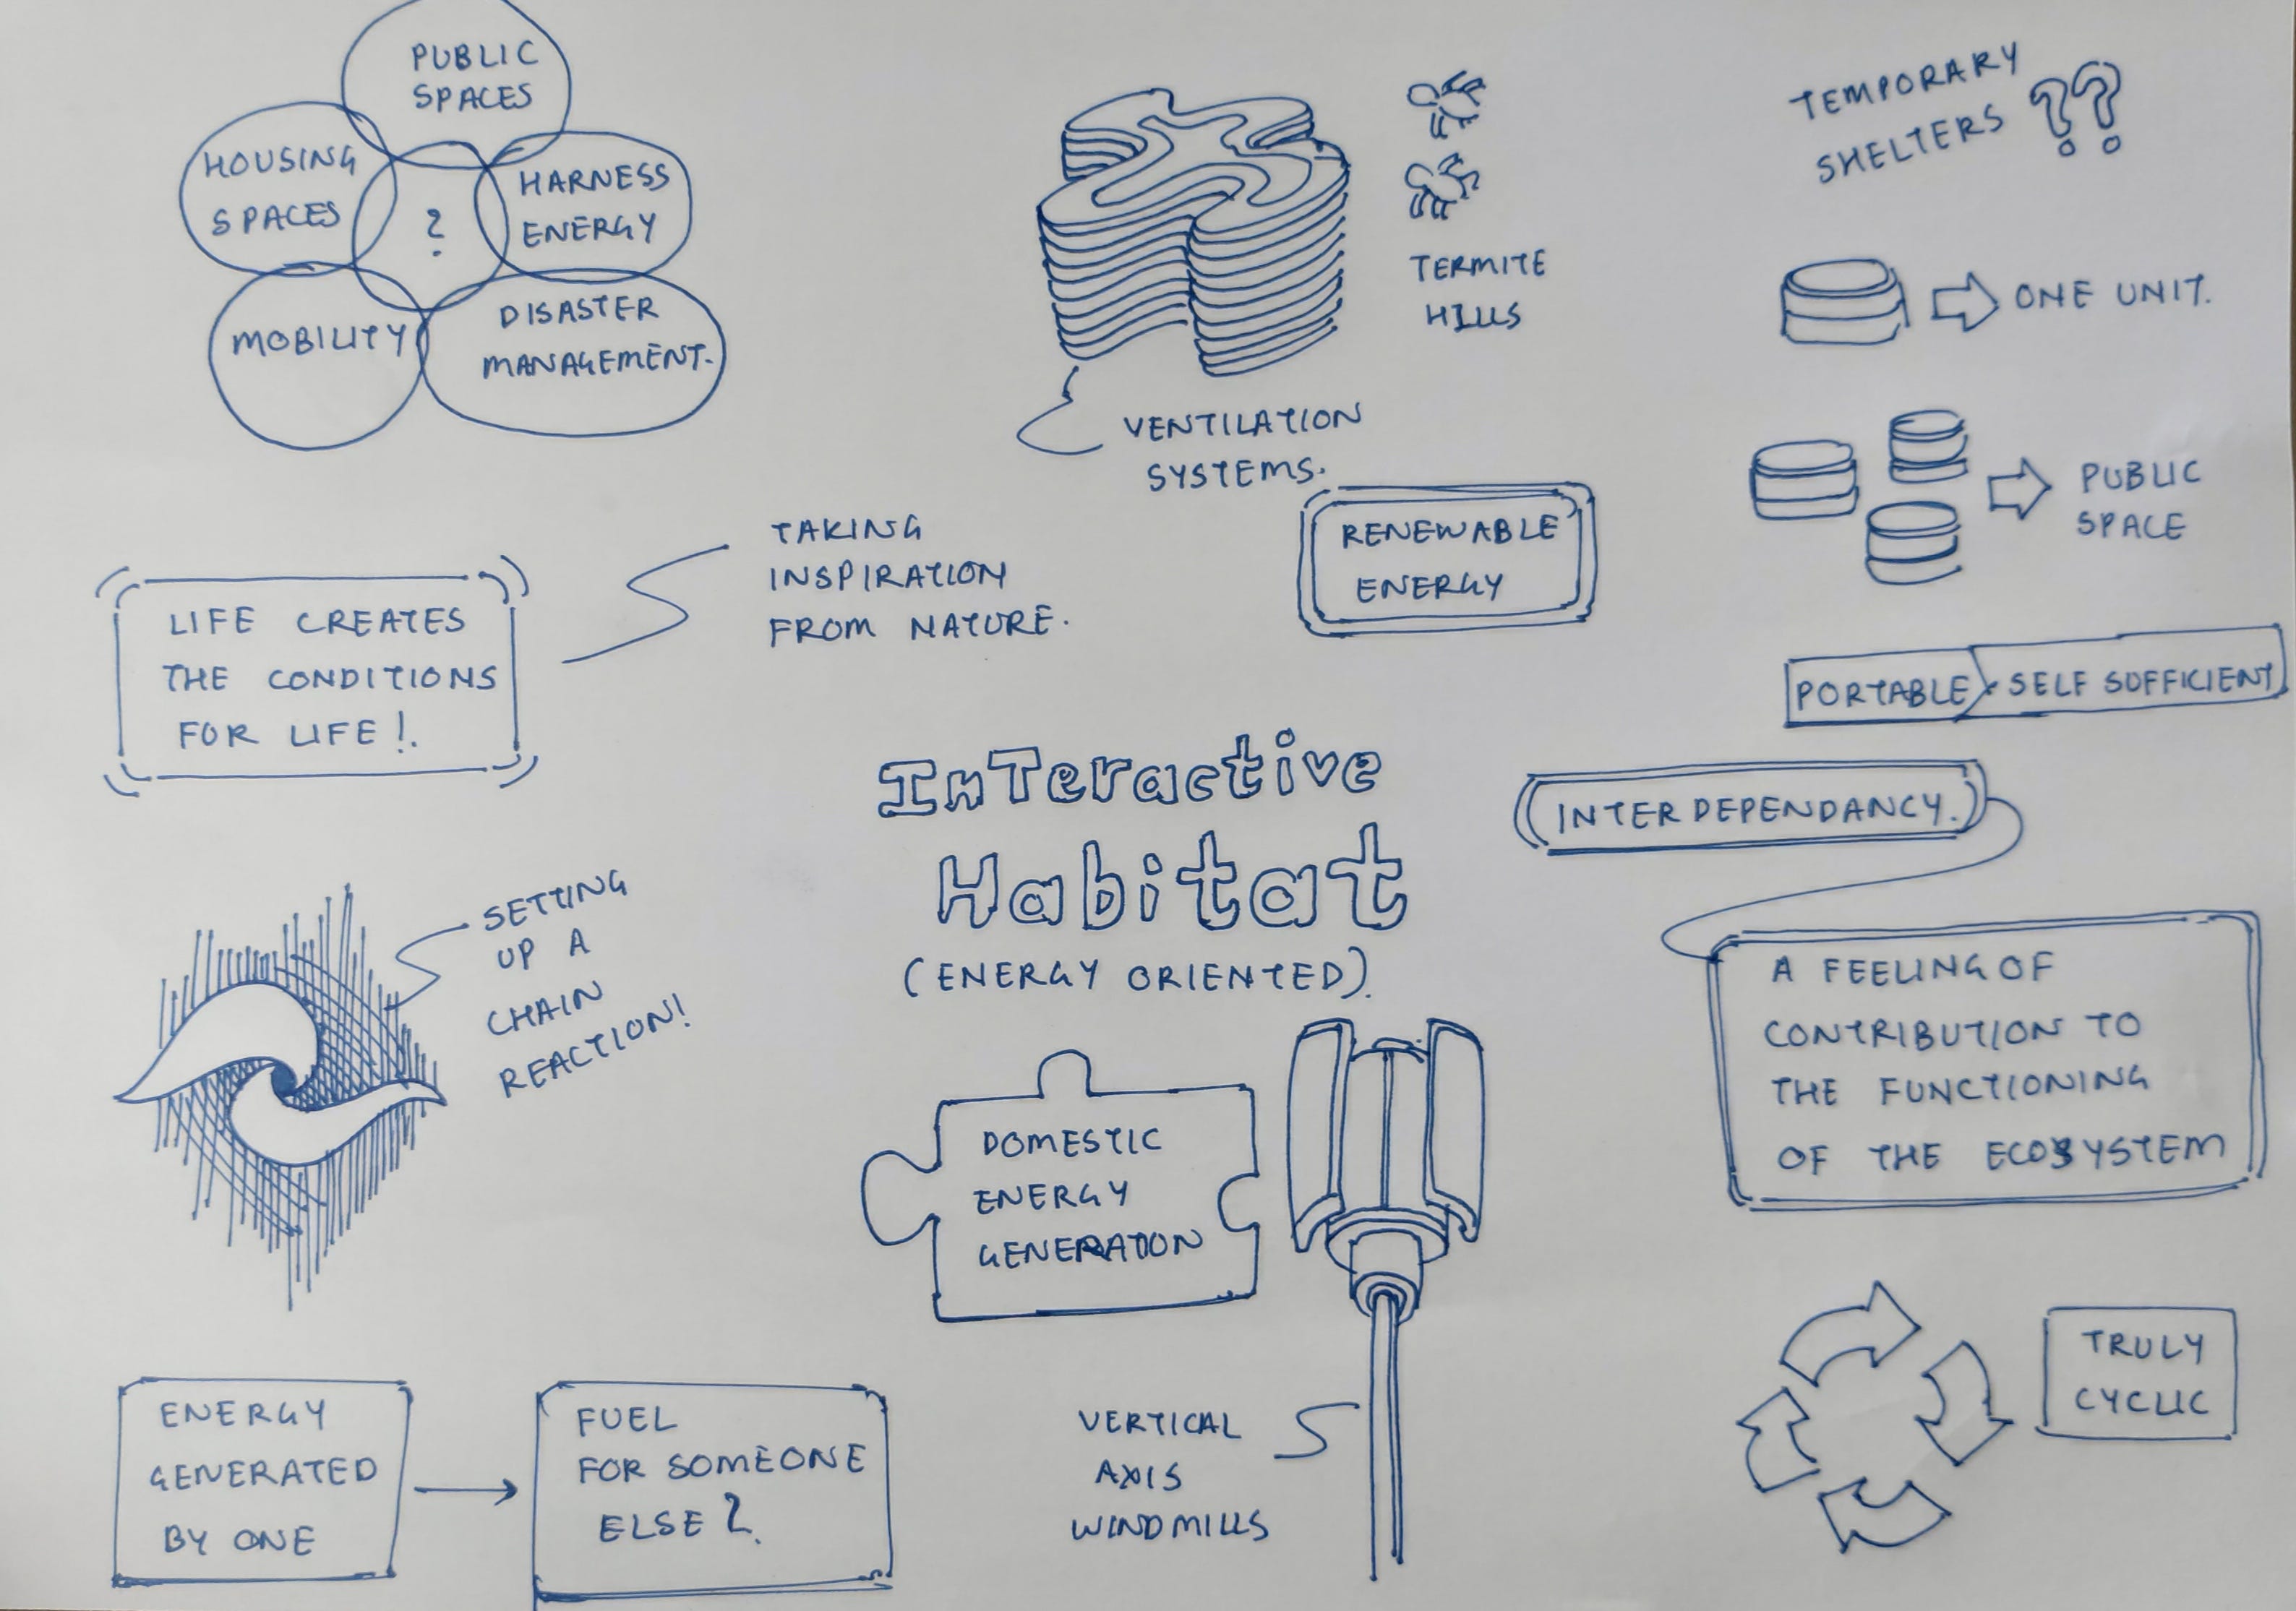 PUBLIC
SPACES
HOUSING
SPACES
HARNESS
ENERGY
?
MOBILITY
DISASTER
MANAGEMENT.
TERMITE
HILLS
VENTILATION
SYSTEMS.
TEMPORARY
SHELTERS ??
ONE UNIT.
PUBLIC
SPACE
LIFE CREATES
THE CONDITIONS
FOR LIFE!.
TAKING
INSPIRATION
FROM NATURE.
RENEWABLE
ENERGY
PORTABLE
SELF SUFFICIENT
INTERDEPENDANCY.
InTeractive
Habitat
(ENERGY ORIENTED).
SETTING
UP A
CHAIN
REACTION!
A FEELING OF
CONTRIBUTION TO
THE FUNCTIONING
OF THE ECOSYSTEM
DOMESTIC
ENERGY
GENERATION
ENERGY
GENERATED
BY ONE
FUEL
FOR SOMEONE
ELSE?
VERTICAL
AXIS
WINDMILLS
TRULY
CYCLIC